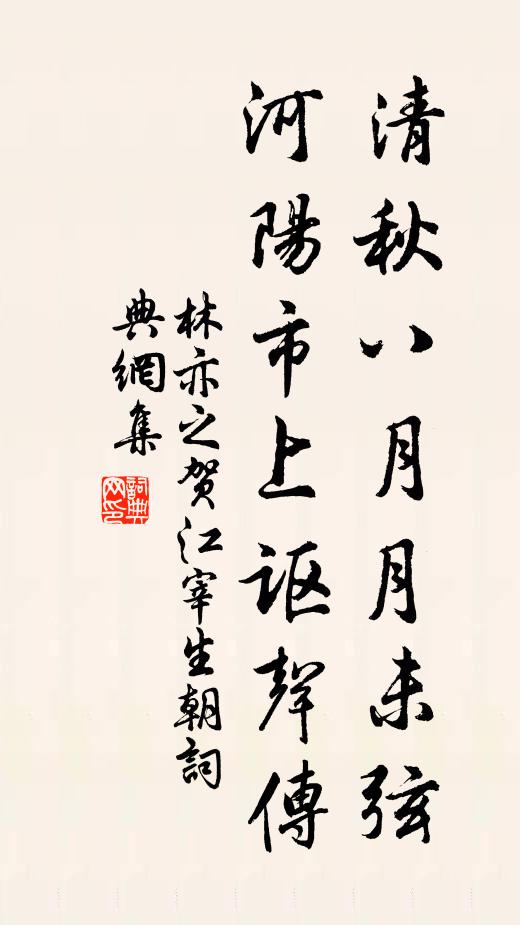 清秋八月月未弦
河陽市上讴聲傳
林亦之贺江宰生朝詞
典網集
詞典网印